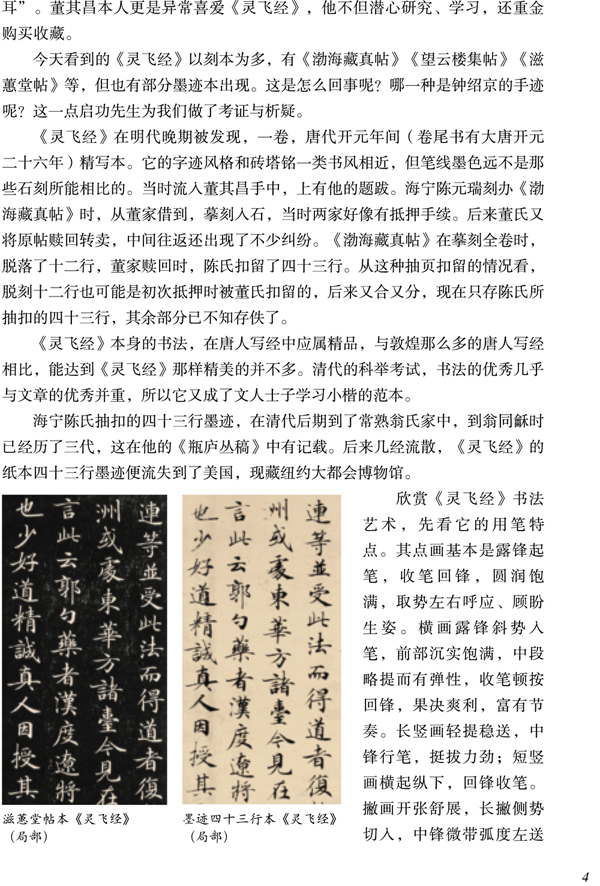 耳”。董其昌本人更是异常喜爱《灵飞经》，他不但潜心研究、学习，还重金
购买收藏。
今天看到的《灵飞经》以刻本为多，有《渤海藏真帖》《望云楼集帖》《滋
蕙堂帖》等，但也有部分墨迹本出现。这是怎么回事呢？哪一种是钟绍京的手迹
呢？这一点启功先生为我们做了考证与析疑。
《灵飞经》在明代晚期被发现，一卷，唐代开元年间（卷尾书有大唐开元
二十六年）精写本。它的字迹风格和砖塔铭一类书风相近，但笔线墨色远不是那
些石刻所能相比的。当时流入董其昌手中，上有他的题跋。海宁陈元瑞刻办《渤
海藏真帖》时，从董家借到，摹刻入石，当时两家好像有抵押手续。后来董氏又
将原帖赎回转卖，中间往返还出现了不少纠纷。《渤海藏真帖》在摹刻全卷时，
脱落了十二行，董家赎回时，陈氏扣留了四十三行。从这种抽页扣留的情况看，
脱刻十二行也可能是初次抵押时被董氏扣留的，后来又合又分，现在只存陈氏所
抽扣的四十三行，其余部分已不知存佚了。
《灵飞经》本身的书法，在唐人写经中应属精品，与敦煌那么多的唐人写经
相比，能达到《灵飞经》那样精美的并不多。清代的科举考试，书法的优秀几乎
与文章的优秀并重，所以它又成了文人士子学习小楷的范本。
海宁陈氏抽扣的四十三行墨迹，在清代后期到了常熟翁氏家中，到翁同龢时
已经历了三代，这在他的《瓶庐丛稿》中有记载。后来几经流散，《灵飞经》的
纸本四十三行墨迹便流失到了美国，现藏纽约大都会博物馆。
連等並受此法而得道者復
州或處東華方諸臺今見在
言此云郭勺藥者漢度遼將
也少好道精誠真人因授其
滋蕙堂帖本《灵飞经》
（局部）
連等並受此法而得道者復
州或處東華方諸臺今見在
言此云郭勺藥者漢度遼將
也少好道精誠真人因授其
墨迹四十三行本《灵飞经》
（局部）
欣赏《灵飞经》书法
艺术，先看它的用笔特
点。其点画基本是露锋起
笔，收笔回锋，圆润饱
满，取势左右呼应、顾盼
生姿。横画露锋斜势入
笔，前部沉实饱满，中段
略提而有弹性，收笔顿按
回锋，果决爽利，富有节
奏。长竖画轻提稳送，中
锋行笔，挺拔力劲；短竖
画横起纵下，回锋收笔。
撇画开张舒展，长撇侧势
切入，中锋微带弧度左送
4